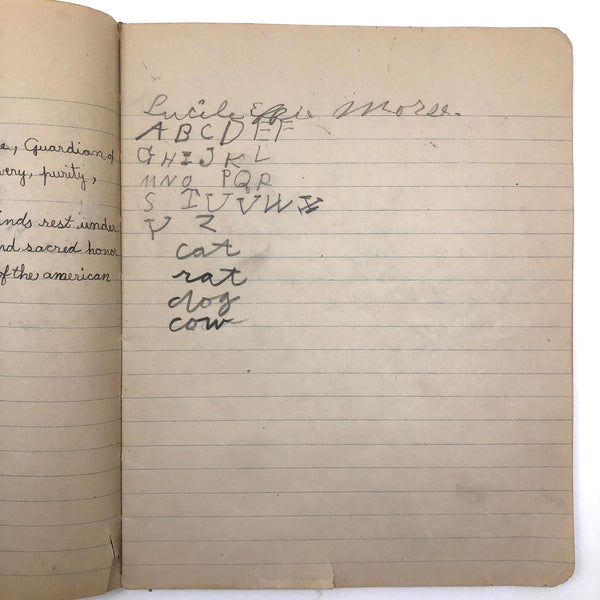 e, Guardian of
very, purity,
inds rest under
nd sacred honor
of the american
Lucile Effie Morse.
A B C D E F
G H I J K L
M N O P Q R
S T U V W X
Y Z
cat
rat
dog
cow